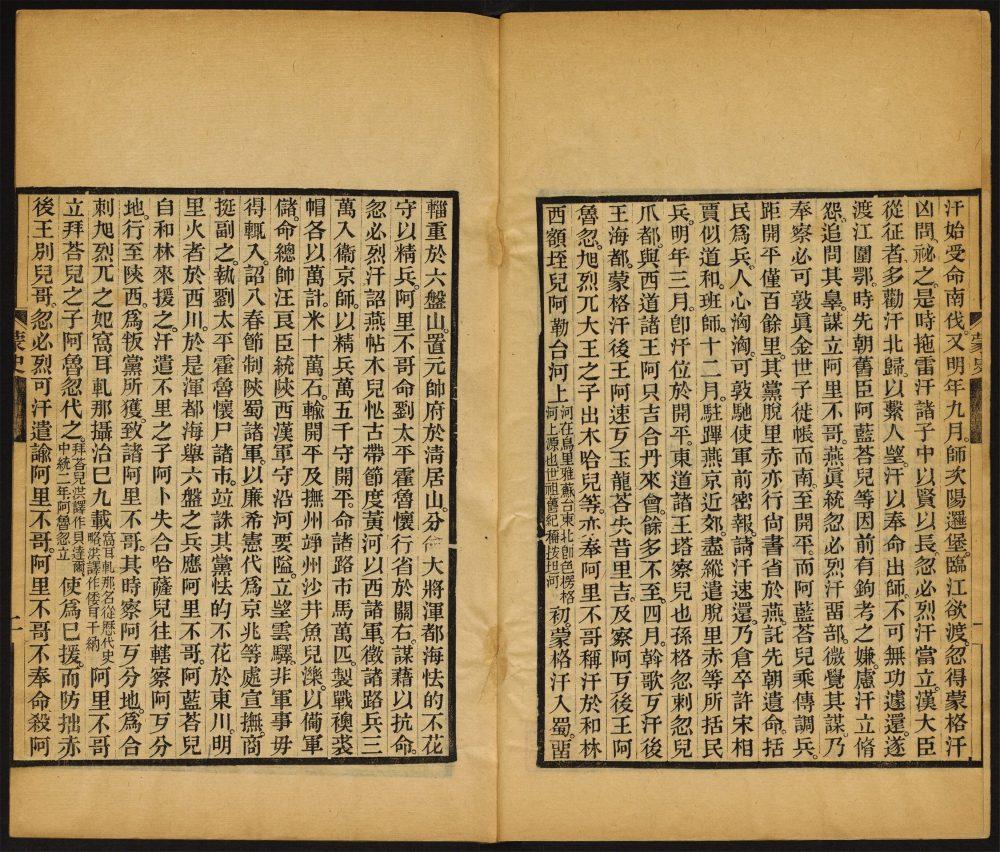 汗始受命南伐。又明年九月。師次陽邏堡。臨江欲渡。忽得蒙格汗
凶問。祕之。是時拖雷汗諸子中以賢以長。忽必烈汗當立。漢大臣
從征者多勸汗北歸。以繫人望。汗以奉命出師。不可無功遽還。遂
渡江圍鄂。時先朝舊臣阿藍荅兒等因前有鉤考之嫌。慮汗立脩
怨。追問其辠。謀立阿里不哥。燕眞統忽必烈汗畱部。微覺其謀。乃
奉察必可敦眞金世子徙帳而南。至開平。而阿藍荅兒乘傳調兵。
距開平僅百餘里。其黨脫里赤亦行尙書省於燕。託先朝遺命。括
民爲兵。人心洶洶。可敦馳使軍前密報。請汗速還。乃倉卒許宋相
賈似道和。班師。十二月。駐蹕燕京近郊。盡縱遣脫里赤等所括民
兵。明年三月。卽汗位於開平。東道諸王塔察兒也孫格忽刺忽兒
爪都。與西道諸王阿只吉合丹來會。餘多不至。四月。斡歌歹汗後
王海都蒙格汗後王阿速歹玉龍荅失昔里吉。及察阿歹後王阿
魯忽。旭烈兀大王之子出木哈兒等。亦奉阿里不哥稱汗於和林
西額垤兒阿勒台河上河在烏里雅蘇台東北卽色楞格河上源也世祖舊紀稱按坦河初。蒙格汗入蜀。畱
輜重於六盤山。置元帥府於淸居山。分 大將渾都海怯的不花
守以精兵。阿里不哥命劉太平霍魯懷行省於關右。謀藉以抗命。
忽必烈汗詔燕帖木兒忙古帶節度黃河以西諸軍。徵諸路兵三
萬入衞京師。以精兵萬五千守開平。命諸路市馬萬匹。製戰襖裘
帽各以萬計。米十萬石。輸開平及撫州竫州沙井魚兒濼。以備軍
儲。命總帥汪良臣統陝西漢軍守沿河要隘。立望雲驛。非軍事毋
得輒入。詔八春節制陝蜀諸軍。以廉希憲代爲京兆等處宣撫。商
挺副之。執劉太平霍魯懷尸諸市。竝誅其黨怯的不花於東川。明
里火者於西川。於是渾都海舉六盤之兵應阿里不哥。阿藍荅兒
自和林來援之。汗遣不里之子阿卜失合哈薩兒往轄察阿歹分
地。行至陝西。爲叛黨所獲。致諸阿里不哥。其時察阿歹分地。爲合
刺旭烈兀之妃窩耳軋那攝治巳九載窩耳軋那名從歷代史略洪譯作倭耳干納阿里不哥
立拜荅兒之子阿魯忽代之。拜荅兒洪譯作貝達爾中統二年阿魯忽立使爲巳援。而防拙赤
後王別兒哥。忽必烈可汗遣諭阿里不哥。阿里不哥不奉命殺阿
蒙史
蒙史